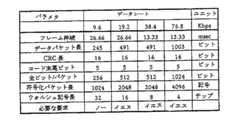 パラメタ データレート ユニット
9.6 19.2 38.4 76.8 Kbps
フレーム持続 26.66 26.66 13.33 13.33 msec
データパケット長 245 491 491 1003 ビット
CRC長 16 16 16 16 ビット
コード末尾ビット 5 5 5 5 ビット
全ビット/パケット 256 512 512 1024 ビット
符号化パケット長 1024 2048 2048 4096 記号
ウォルシュ記号長 32 16 8 4 チップ
必要な要求 ノー イエス イエス イエス